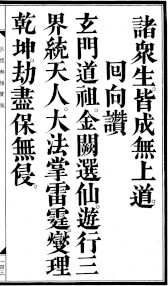 諸衆生。皆成無上道。
回向讚
玄門道祖。金闕選仙。遊行三
界統天人。大法掌雷霆。燮理
乾坤。劫盡保無侵。